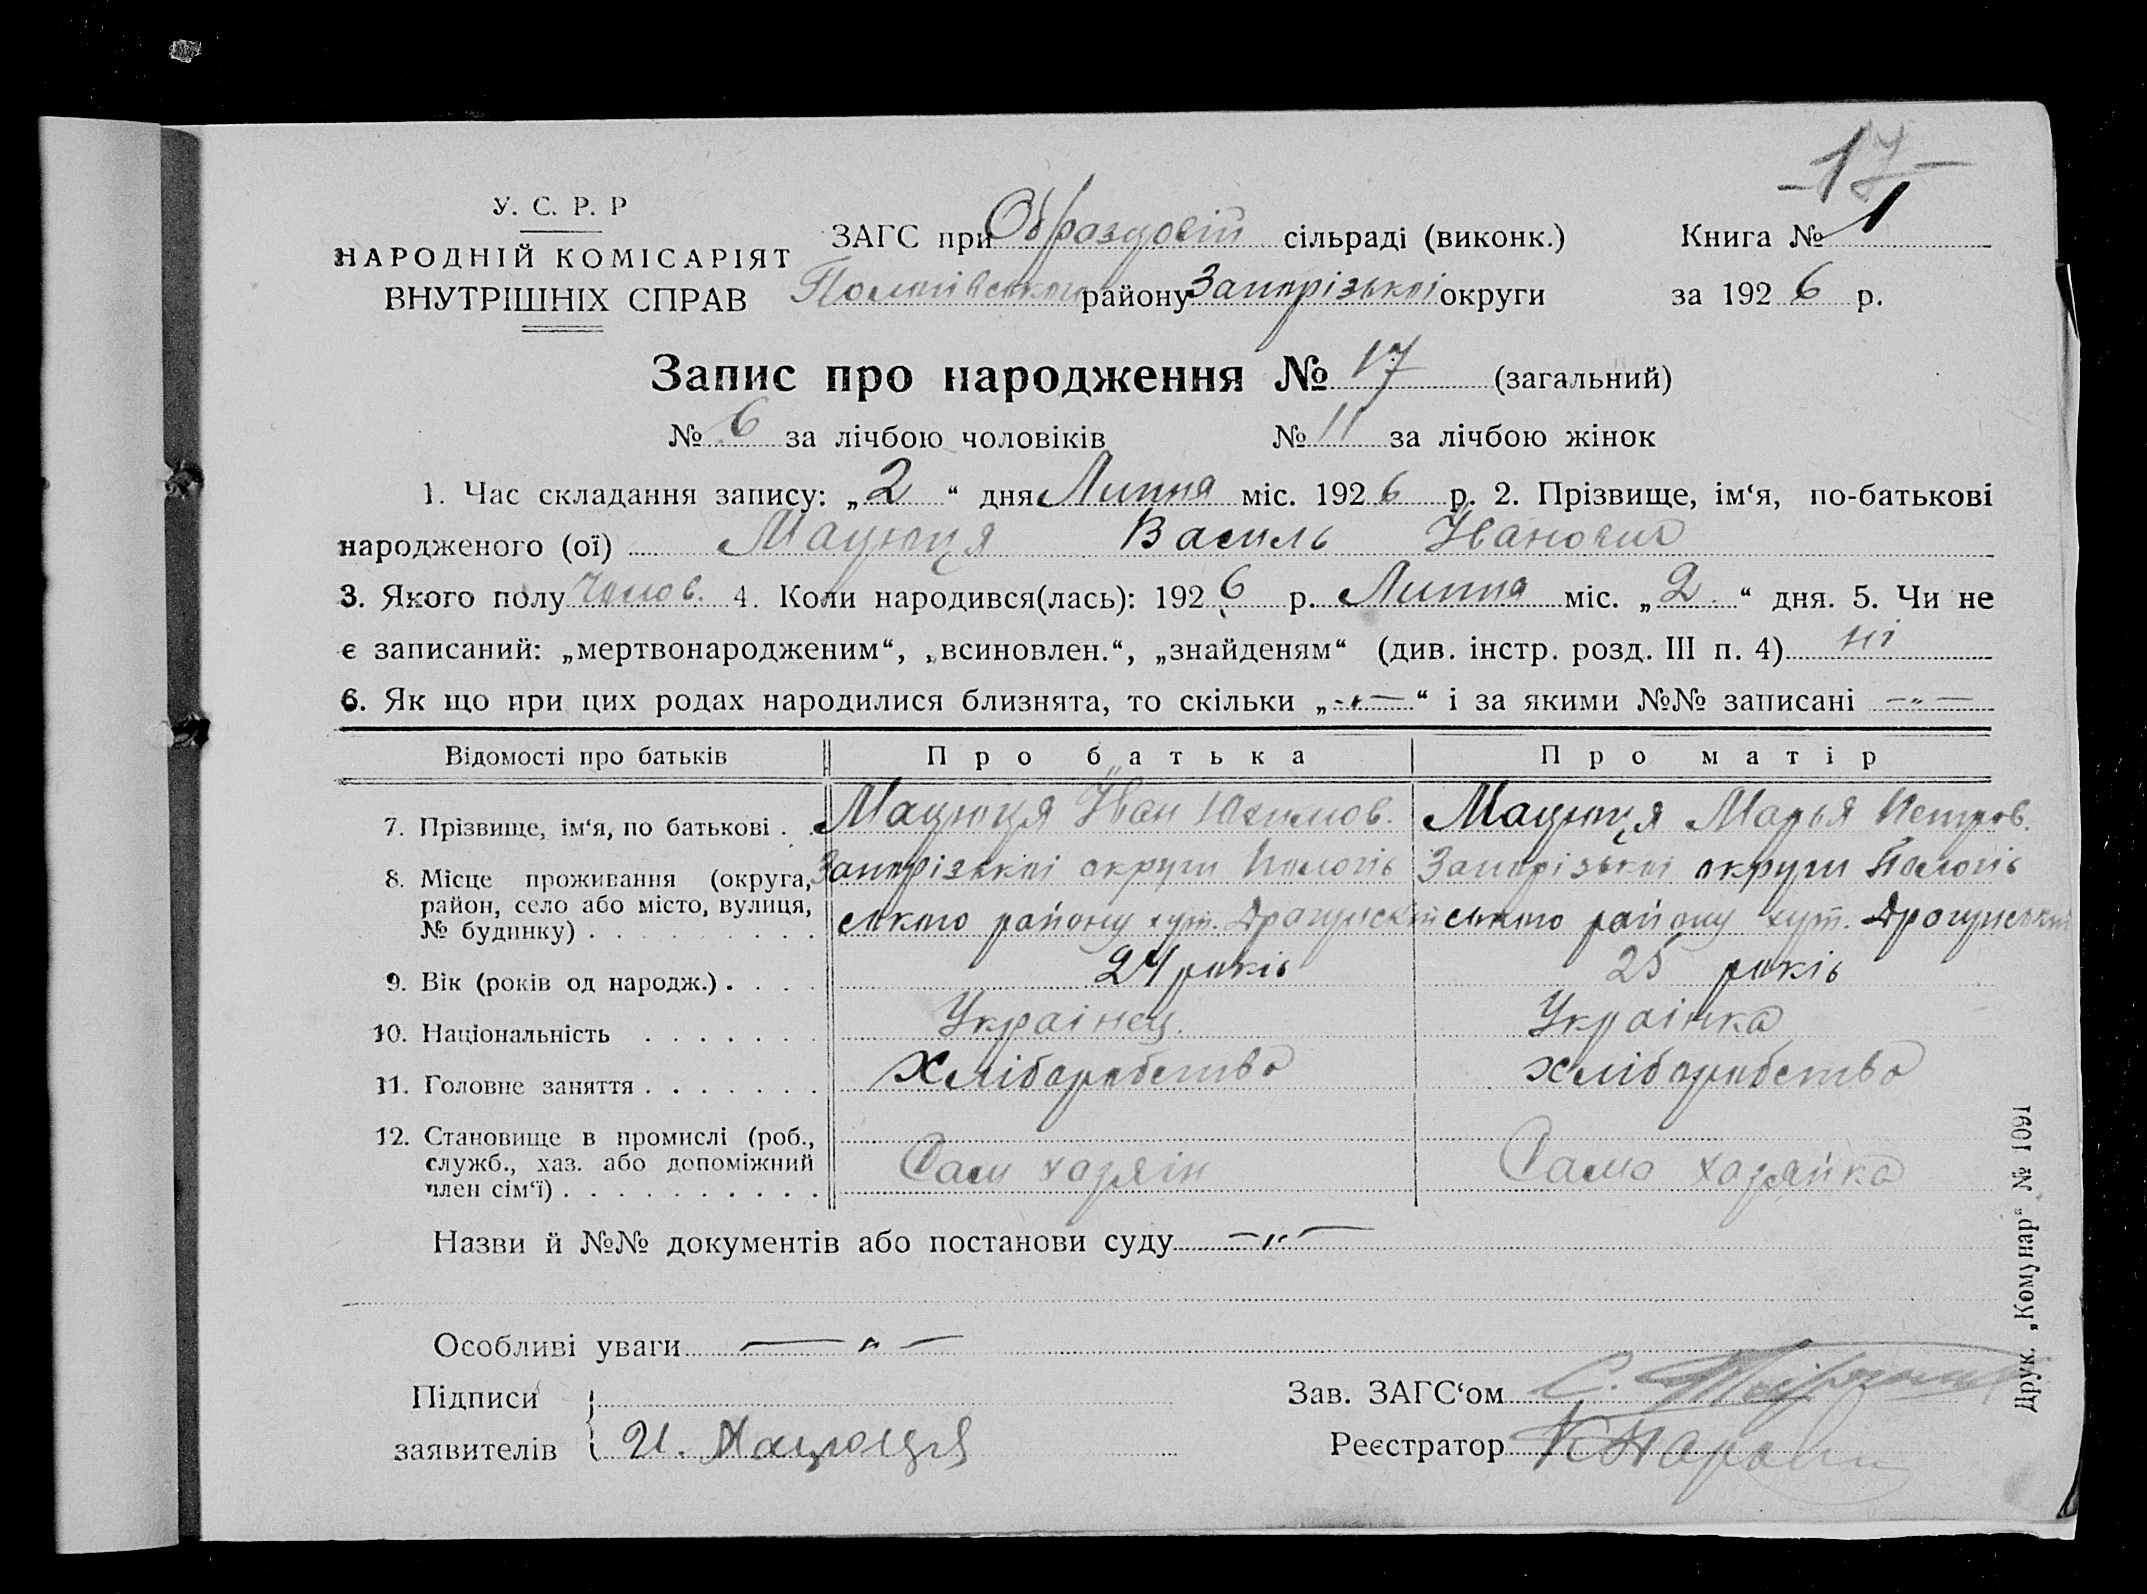 17
У. С. Р. Р
НАРОДНІЙ КОМІСАРІЯТ
ВНУТРІШНІХ СПРАВ
ЗАГС при Образцовій сільраді (виконк.)
Пологівського району Запорізької округи
Книга № 1
за 1926 р.
Запис про народження № 17 (загальний)
№ 6 за лічбою чоловіків № 11 за лічбою жінок
1. Час складання запису: „2“ дня Липня міс. 1926 р. 2. Прізвище, ім‘я, по-батькові
народженого (ої) Мацюця Василь Іванович
3. Якого полу Чолов. 4. Коли народився(лась): 1926 р. Липня міс. „2.“ дня. 5. Чи не
є записаний: „мертвонародженим“, „всиновлен.“, „знайденям“ (див. інстр. розд. III п. 4) ні
6. Як що при цих родах народилися близнята, то скільки „-„-“ і за якими №№ записані -„-
Відомості про батьків Про батька Про матір
7. Прізвище, ім‘я, по батькові . . Мацюця Іван Юхимов. Мацюця Марья Петров.
8. Місце проживання (округа, район, село або місто, вулиця, № будинку) . . . . . . . . .
Запорізької округи Пологів
ського району хут. Драгунський
Запорізької округи Пологів
ського району хут. Драгунський
9. Вік (років од народж.) . . . . 24 років 25 років
10. Національність . . . . . . . Українец. Українка
11. Головне заняття . . . . . . . Хліборобство хліборобство
12. Становище в промислі (роб.,
служб., хаз. або допоміжний
член сім‘ї) . . . . . . . . . . Сам хозяін Сама хозяйка
Назви й №№ документів або постанови суду -„-
Особливі уваги -„-
Підписи
заявителів И. Мацюця
Зав. ЗАГС‘ом С.
Реєстратор К
Друк. „Комунар“ № 1091